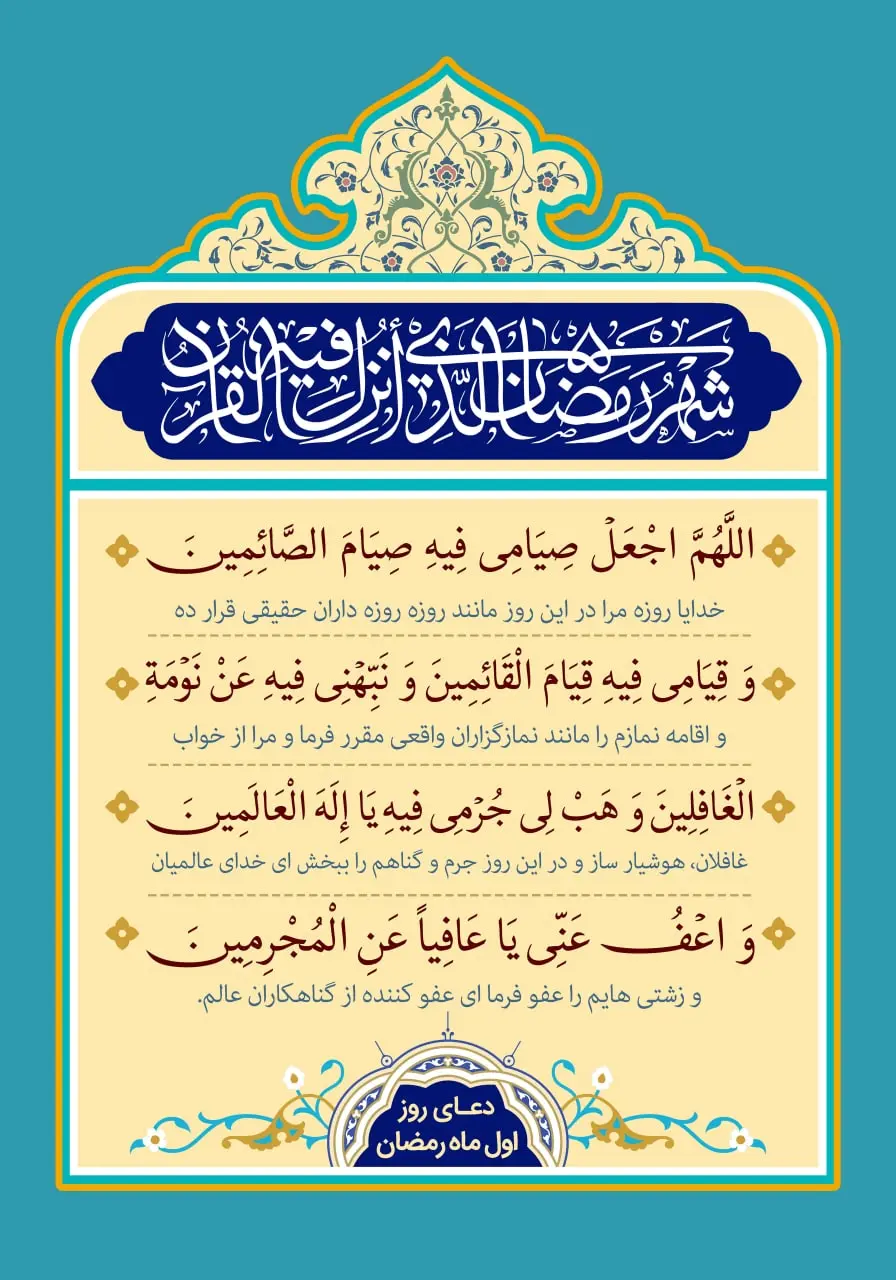 شهر رمضان الذي أنزل فيه القرآن
اللَّهُمَّ اجْعَلْ صِيَامِی فِيهِ صِيَامَ الصَّائِمِينَ
خدایا روزه مرا در این روز مانند روزه روزه داران حقیقی قرار ده
وَ قِيَامِی فِيهِ قِيَامَ الْقَائِمِينَ وَ نَبِّهْنِی فِيهِ عَنْ نَوْمَةِ
و اقامه نمازم را مانند نمازگزاران واقعی مقرر فرما و مرا از خواب
الْغَافِلِينَ وَ هَبْ لِی جُرْمِی فِيهِ يَا إِلَهَ الْعَالَمِينَ
غافلان، هوشیار ساز و در این روز جرم و گناهم را ببخش ای خدای عالمیان
وَ اعْفُ عَنِّی يَا عَافِياً عَنِ الْمُجْرِمِينَ
و زشتی هایم را عفو فرما ای عفو کننده از گناهکاران عالم.
دعای روز
اول ماه رمضان